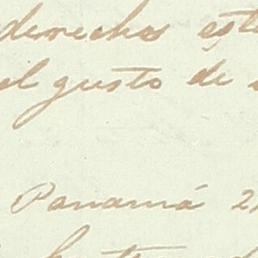 derechos est
el gusto de
Panamá 2